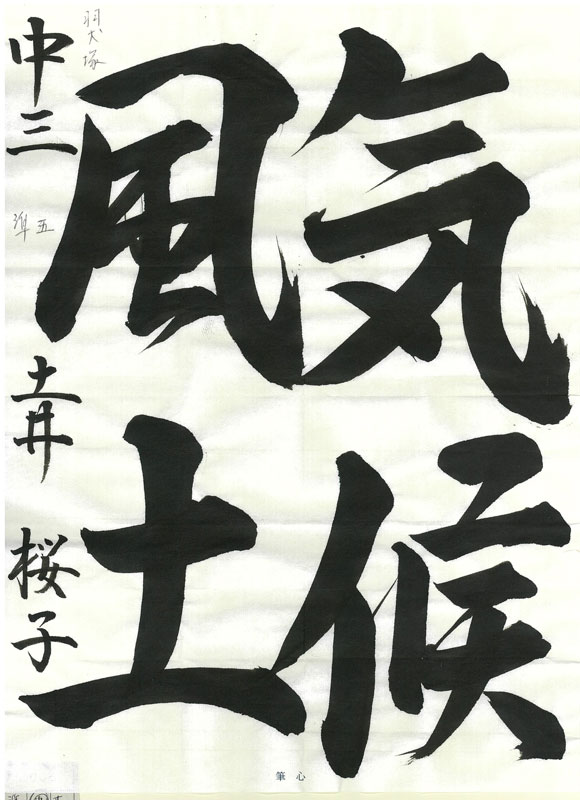 気候
風土
中三 土井 桜子
羽犬塚
準五
筆心